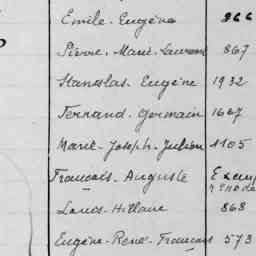 Emile-Eugène 266
Pierre-Marie-Laurent 867
Stanislas-Eugène 1932
Fernand-Germain 1607
Marie-Joseph-Julien 1105
François-Auguste
Louis-Hilaire 868
Eugène-René-François 573